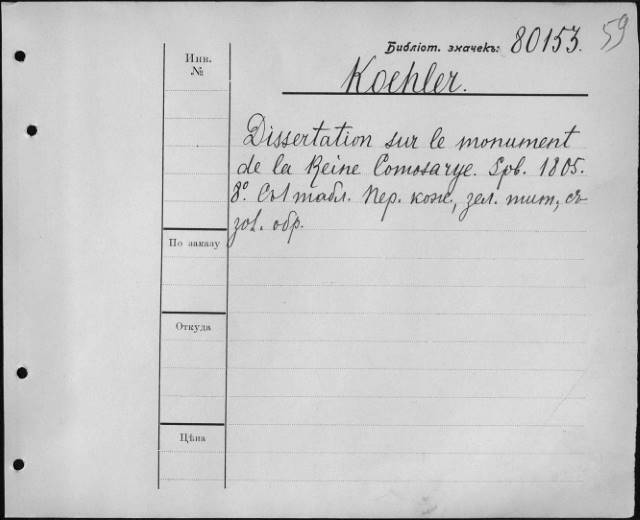 59
Библіот. значекъ: 80153.
Инв.
№
Koehler.
Dissertation sur le monument
de la Reine Comosarye. Spb. 1805.
8° Съ 1 табл. Пер. кож., зел. тит., съ
зол. обр.
По заказу
Откуда
Цѣна